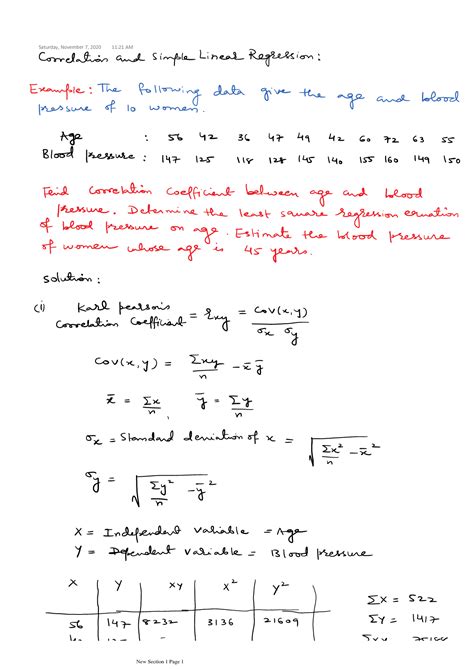 Saturday, November 7, 2020 11:21 AM
Correlation and Simple Linear Regression :
Example : The following data give the age and blood
pressure of 10 women.
Age : 56 42 36 47 49 42 60 72 63 55
Blood pressure : 147 125 118 128 145 140 155 160 149 150
Find correlation coefficient between age and blood
pressure. Determine the least square regression equation
of blood pressure on age. Estimate the blood pressure
of women whose age is 45 years.
Solution :
(i) Karl pearson's
Correlation Coefficient = rxy = Cov(x,y) / σx σy
Cov(x,y) = Σxy/n - x̄ ȳ
x̄ = Σx/n , ȳ = Σy/n
σx = Standard deviation of x = √(Σx²/n - x̄²)
σy = √(Σy²/n - ȳ²)
X = Independent variable = Age
Y = Dependent variable = Blood pressure
X Y XY X² Y²
ΣX = 522
56 147 8232 3136 21609
ΣY = 1417
New Section 1 Page 1